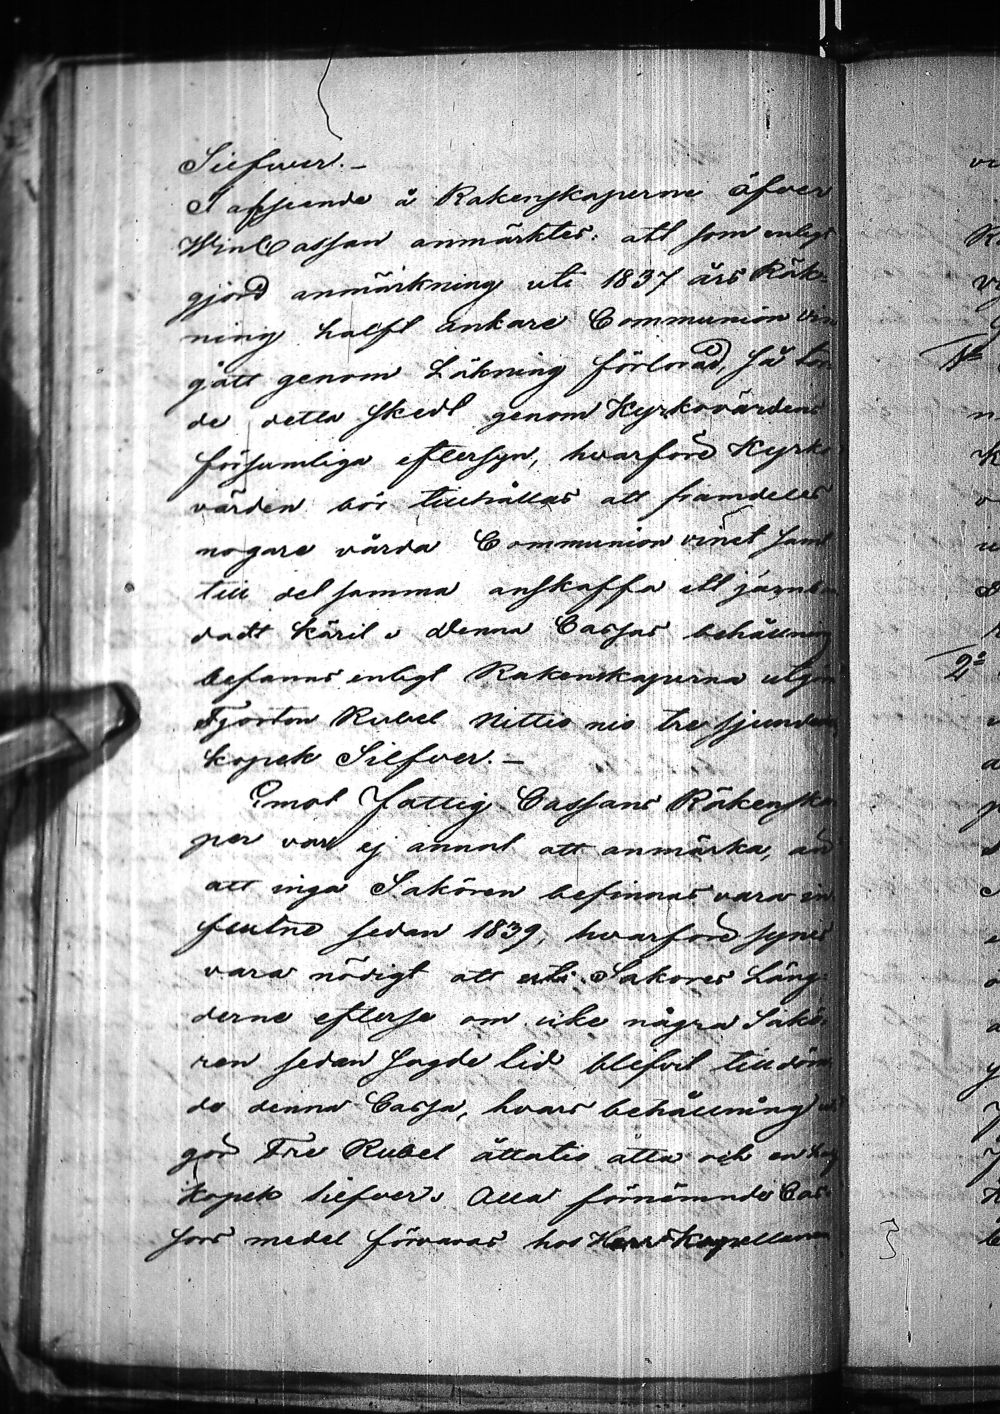 Silfwer.—
I afseende å Räkenskaperne öfver
WinCassan anmärktes: att som enligt
gjord anmärkning uti 1837 års Räk-
ning halft ankare Communion vin
gått genom Läkning förlorad, så tor-
de detta skedt genom Kyrkovärdens
försumliga eftersyn, hvarföre Kyrko-
värden bör tillhållas att framdeles
nogare vårda Communion vinet samt
till det samma anskaffa ett järnban-
dadt käril. Denna Cassas behållning
befanns enligt Räkenskaperna utgöra
Fjorton Rubel Nittio nio tre sjundedels
kopek Silfver.—
Emot Fattig Cassans Räkenska-
per var ej annat att anmärka, än
att inga Sakören befinnas vara in-
flutne sedan 1839, hvarföre synes
vara nödigt att uti Sakörs Läng-
derne efterse om icke några Sakö-
ren sedan sagde tid blifvit tilldöm-
de denna Cassa, hvars behållning ut-
gör Tre Rubel åttatio åtta och en
kopek silfver. Alla förnämnde Cas-
sors medel förvaras hos Herr Kapellanen